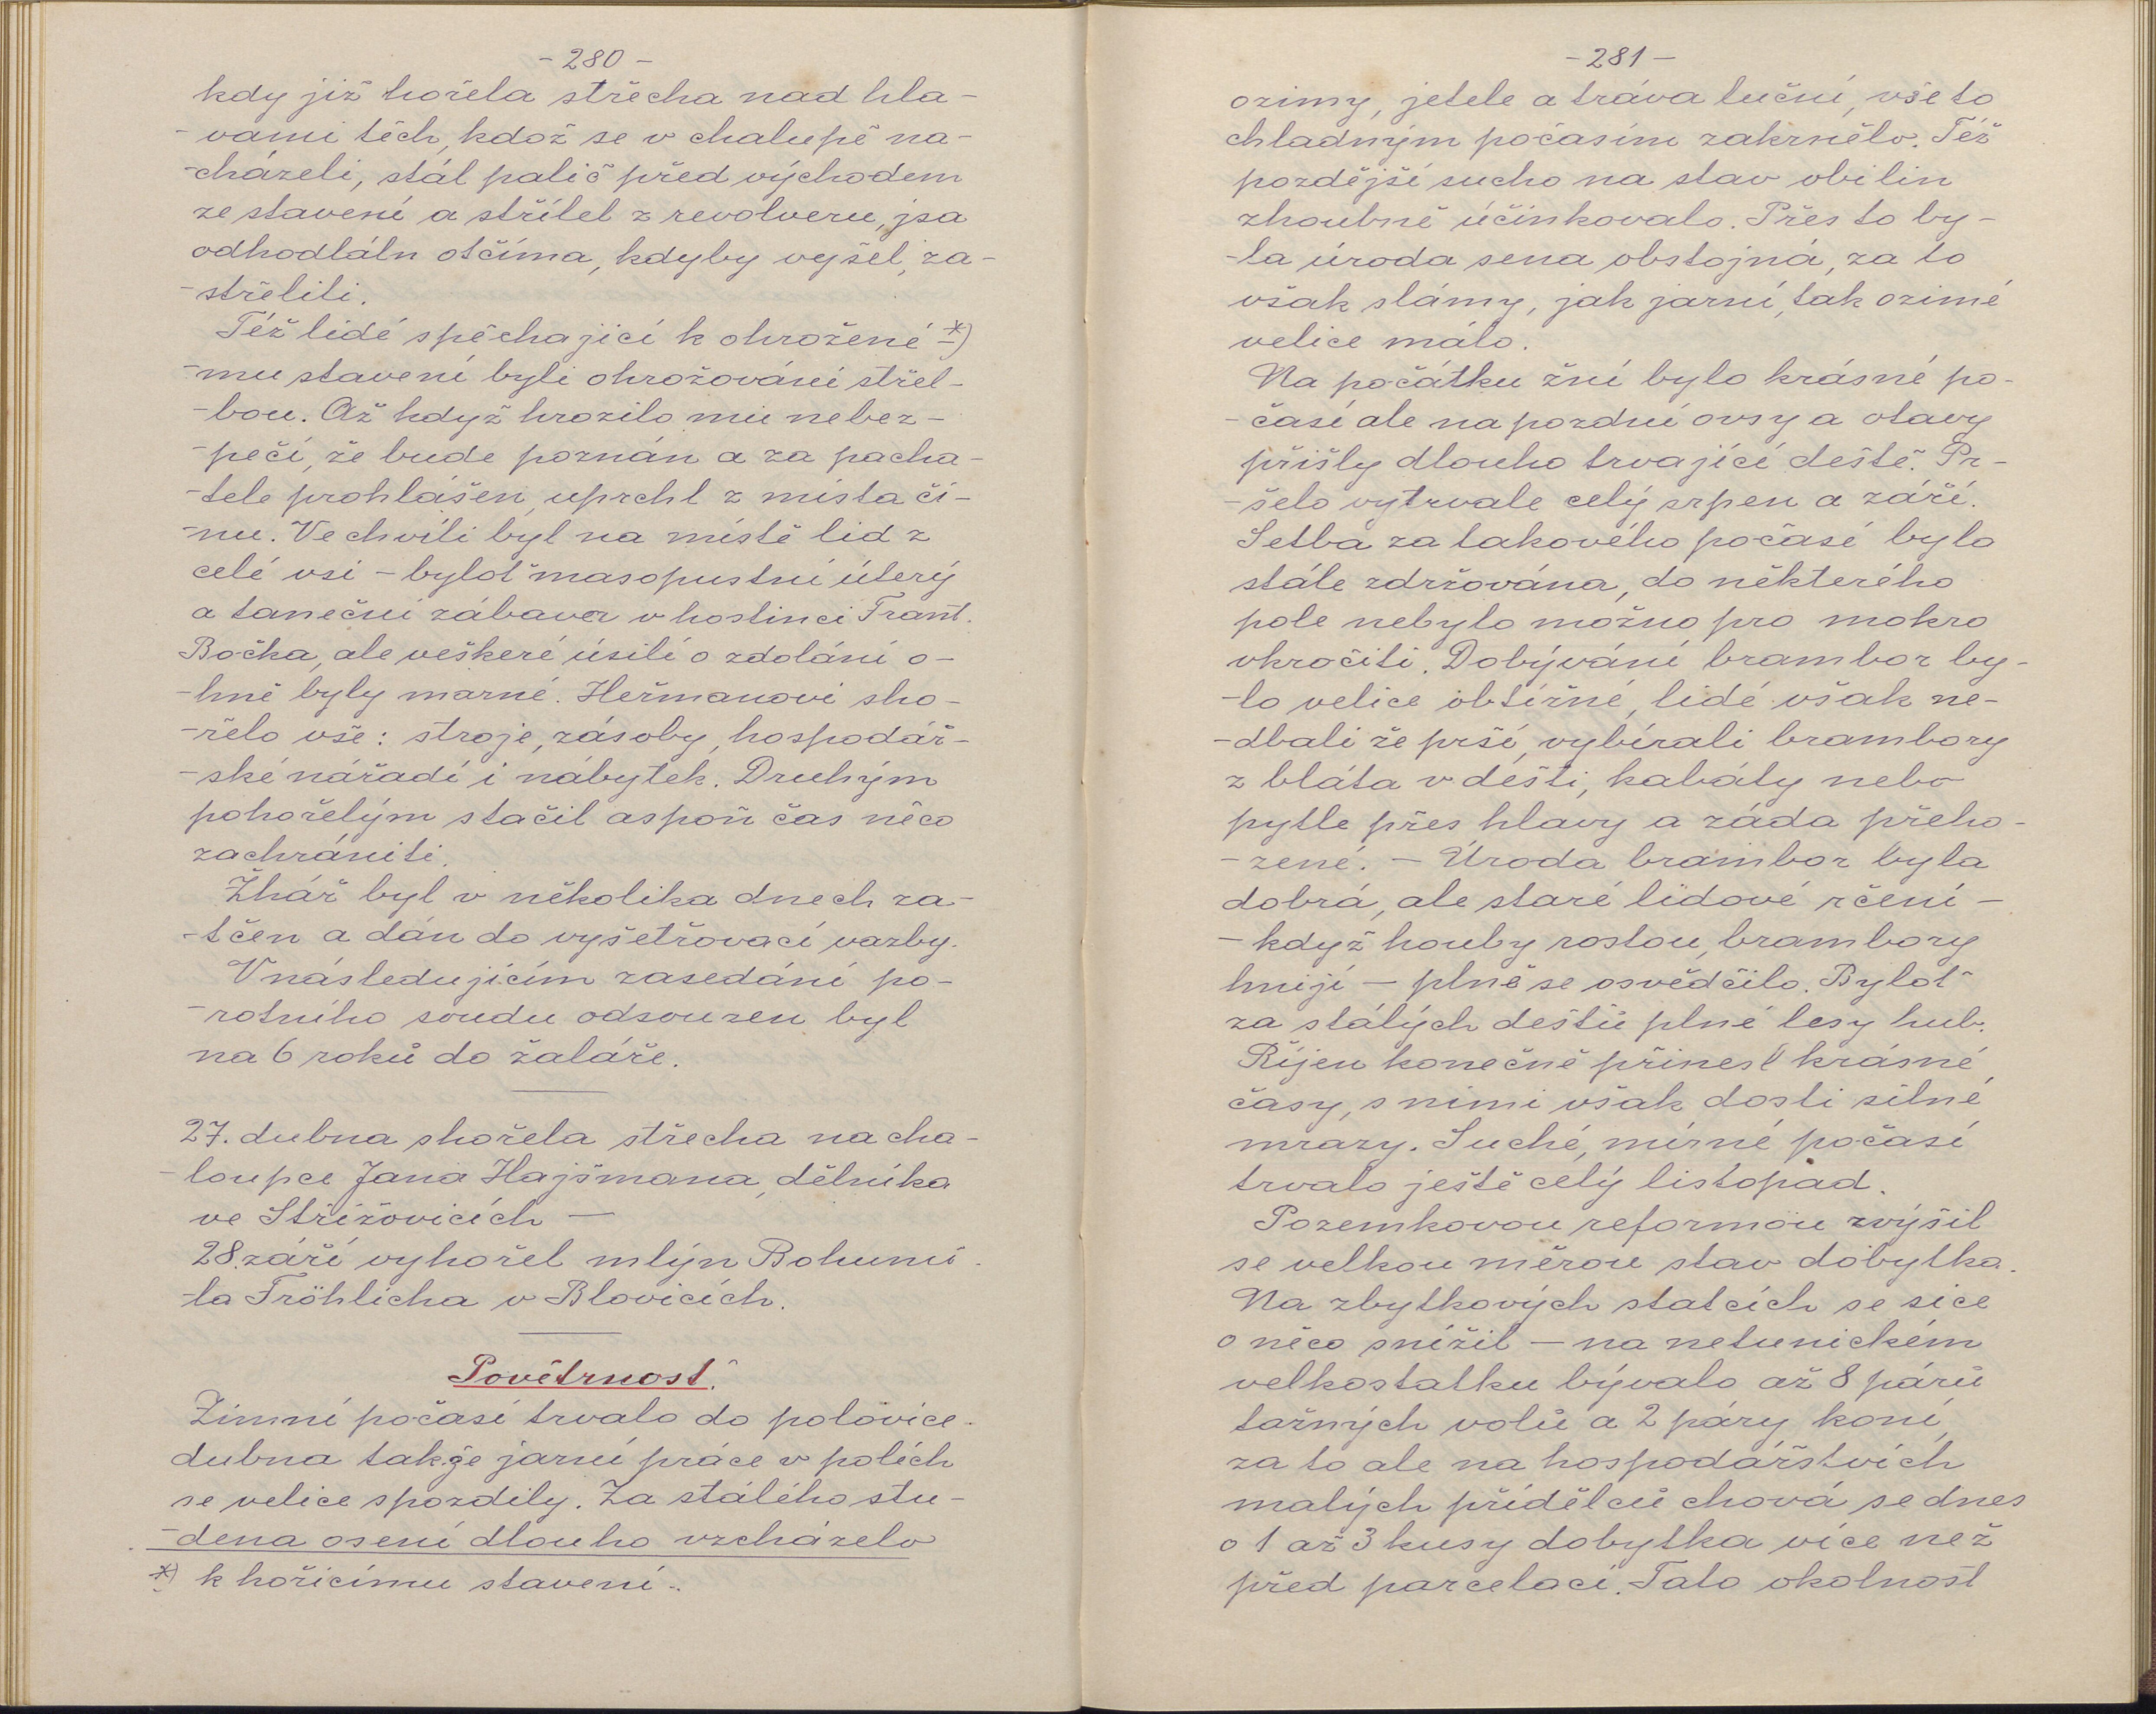 - 280 -
kdy již hořela střecha nad hla-
-vami těch, kdož se v chalupě na-
-cházeli, stál palič před východem
ze stavení a střílel z revolveru, jsa
odhodlán otčíma, kdyby vyšel, za-
-střeliti.
Též lidé spěchající k ohrožené *)
-mu stavení byli ohrožováni střel-
-bou. Až když hrozilo mu nebez-
-pečí, že bude poznán a za pacha-
-tele prohlášen, uprchl z místa či-
-nu. Ve chvíli byl na místě lid z
celé vsi - byloť masopustní úterý
a taneční zábava v hostinci Frant.
Bočka, ale veškeré úsilí o zdolání o-
-hně byly marné. Heřmanovi sho-
-řelo vše: stroje, zásoby, hospodář-
-ské nářadí i nábytek. Druhým
pohořelým stačil aspoň čas něco
zachrániti.
Žhář byl v několika dnech za-
-tčen a dán do vyšetřovací vazby.
V následujícím zasedání po-
-rotního soudu odsouzen byl
na 6 roků do žaláře.
27. dubna shořela střecha na cha-
-loupce Jana Hajšmana, dělníka
ve Střížovicích —
28. září vyhořel mlýn Bohumi-
-la Fröhlicha v Blovicích.
Povětrnost.
Zimní počasí trvalo do polovice
dubna takže jarní práce v polích
se velice spozdily. Za stálého stu-
-dena osení dlouho vzcházelo
*) k hořícímu stavení.
- 281 -
ozimy, jetele a tráva luční, vše to
chladným počasím zakrnělo. Též
pozdější sucho na stav obilin
zhoubně účinkovalo. Přes to by-
-la úroda sena obstojná, za to
však slámy, jak jarní, tak ozimé
velice málo.
Na počátku žní bylo krásné po-
-časí ale na pozdní ovsy a otavy
přišly dlouho trvající deště. Pr-
-šelo vytrvale celý srpen a září.
Setba za takového počasí byla
stále zdržována, do některého
pole nebylo možno pro mokro
vkročiti. Dobývání brambor by-
-lo velice obtížné, lidé však ne-
-dbali že prší, vybírali brambory
z bláta v dešti, kabáty nebo
pytle přes hlavy a záda přeho-
-zené. — Úroda brambor byla
dobrá, ale staré lidové rčení —
— když houby rostou, brambory
hnijí — plně se osvědčilo. Byloť
za stálých dešťů plné lesy hub.
Říjen konečně přinesl krásné
časy, s nimi však dosti silné
mrazy. Suché, mírné počasí
trvalo ještě celý listopad.
Pozemkovou reformou zvýšil
se velkou měrou stav dobytka.
Na zbytkových statcích se sice
o něco snížil — na netunickém
velkostatku bývalo až 8 párů
tažných volů a 2 páry koní,
za to ale na hospodářstvích
malých přídělců chová se dnes
o 1 až 3 kusy dobytka více než
před parcelací. Tato okolnost